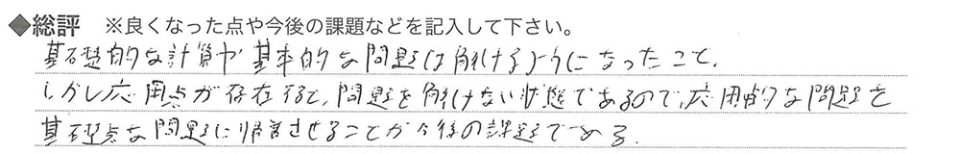 ◆総評 ※良くなった点や今後の課題などを記入して下さい。
基礎的な計算や基本的な問題は解けるようになったこと。
しかし応用点が存在すると、問題を解けない状態であるので、応用的な問題を
基礎点な問題に帰着させることが今後の課題である。